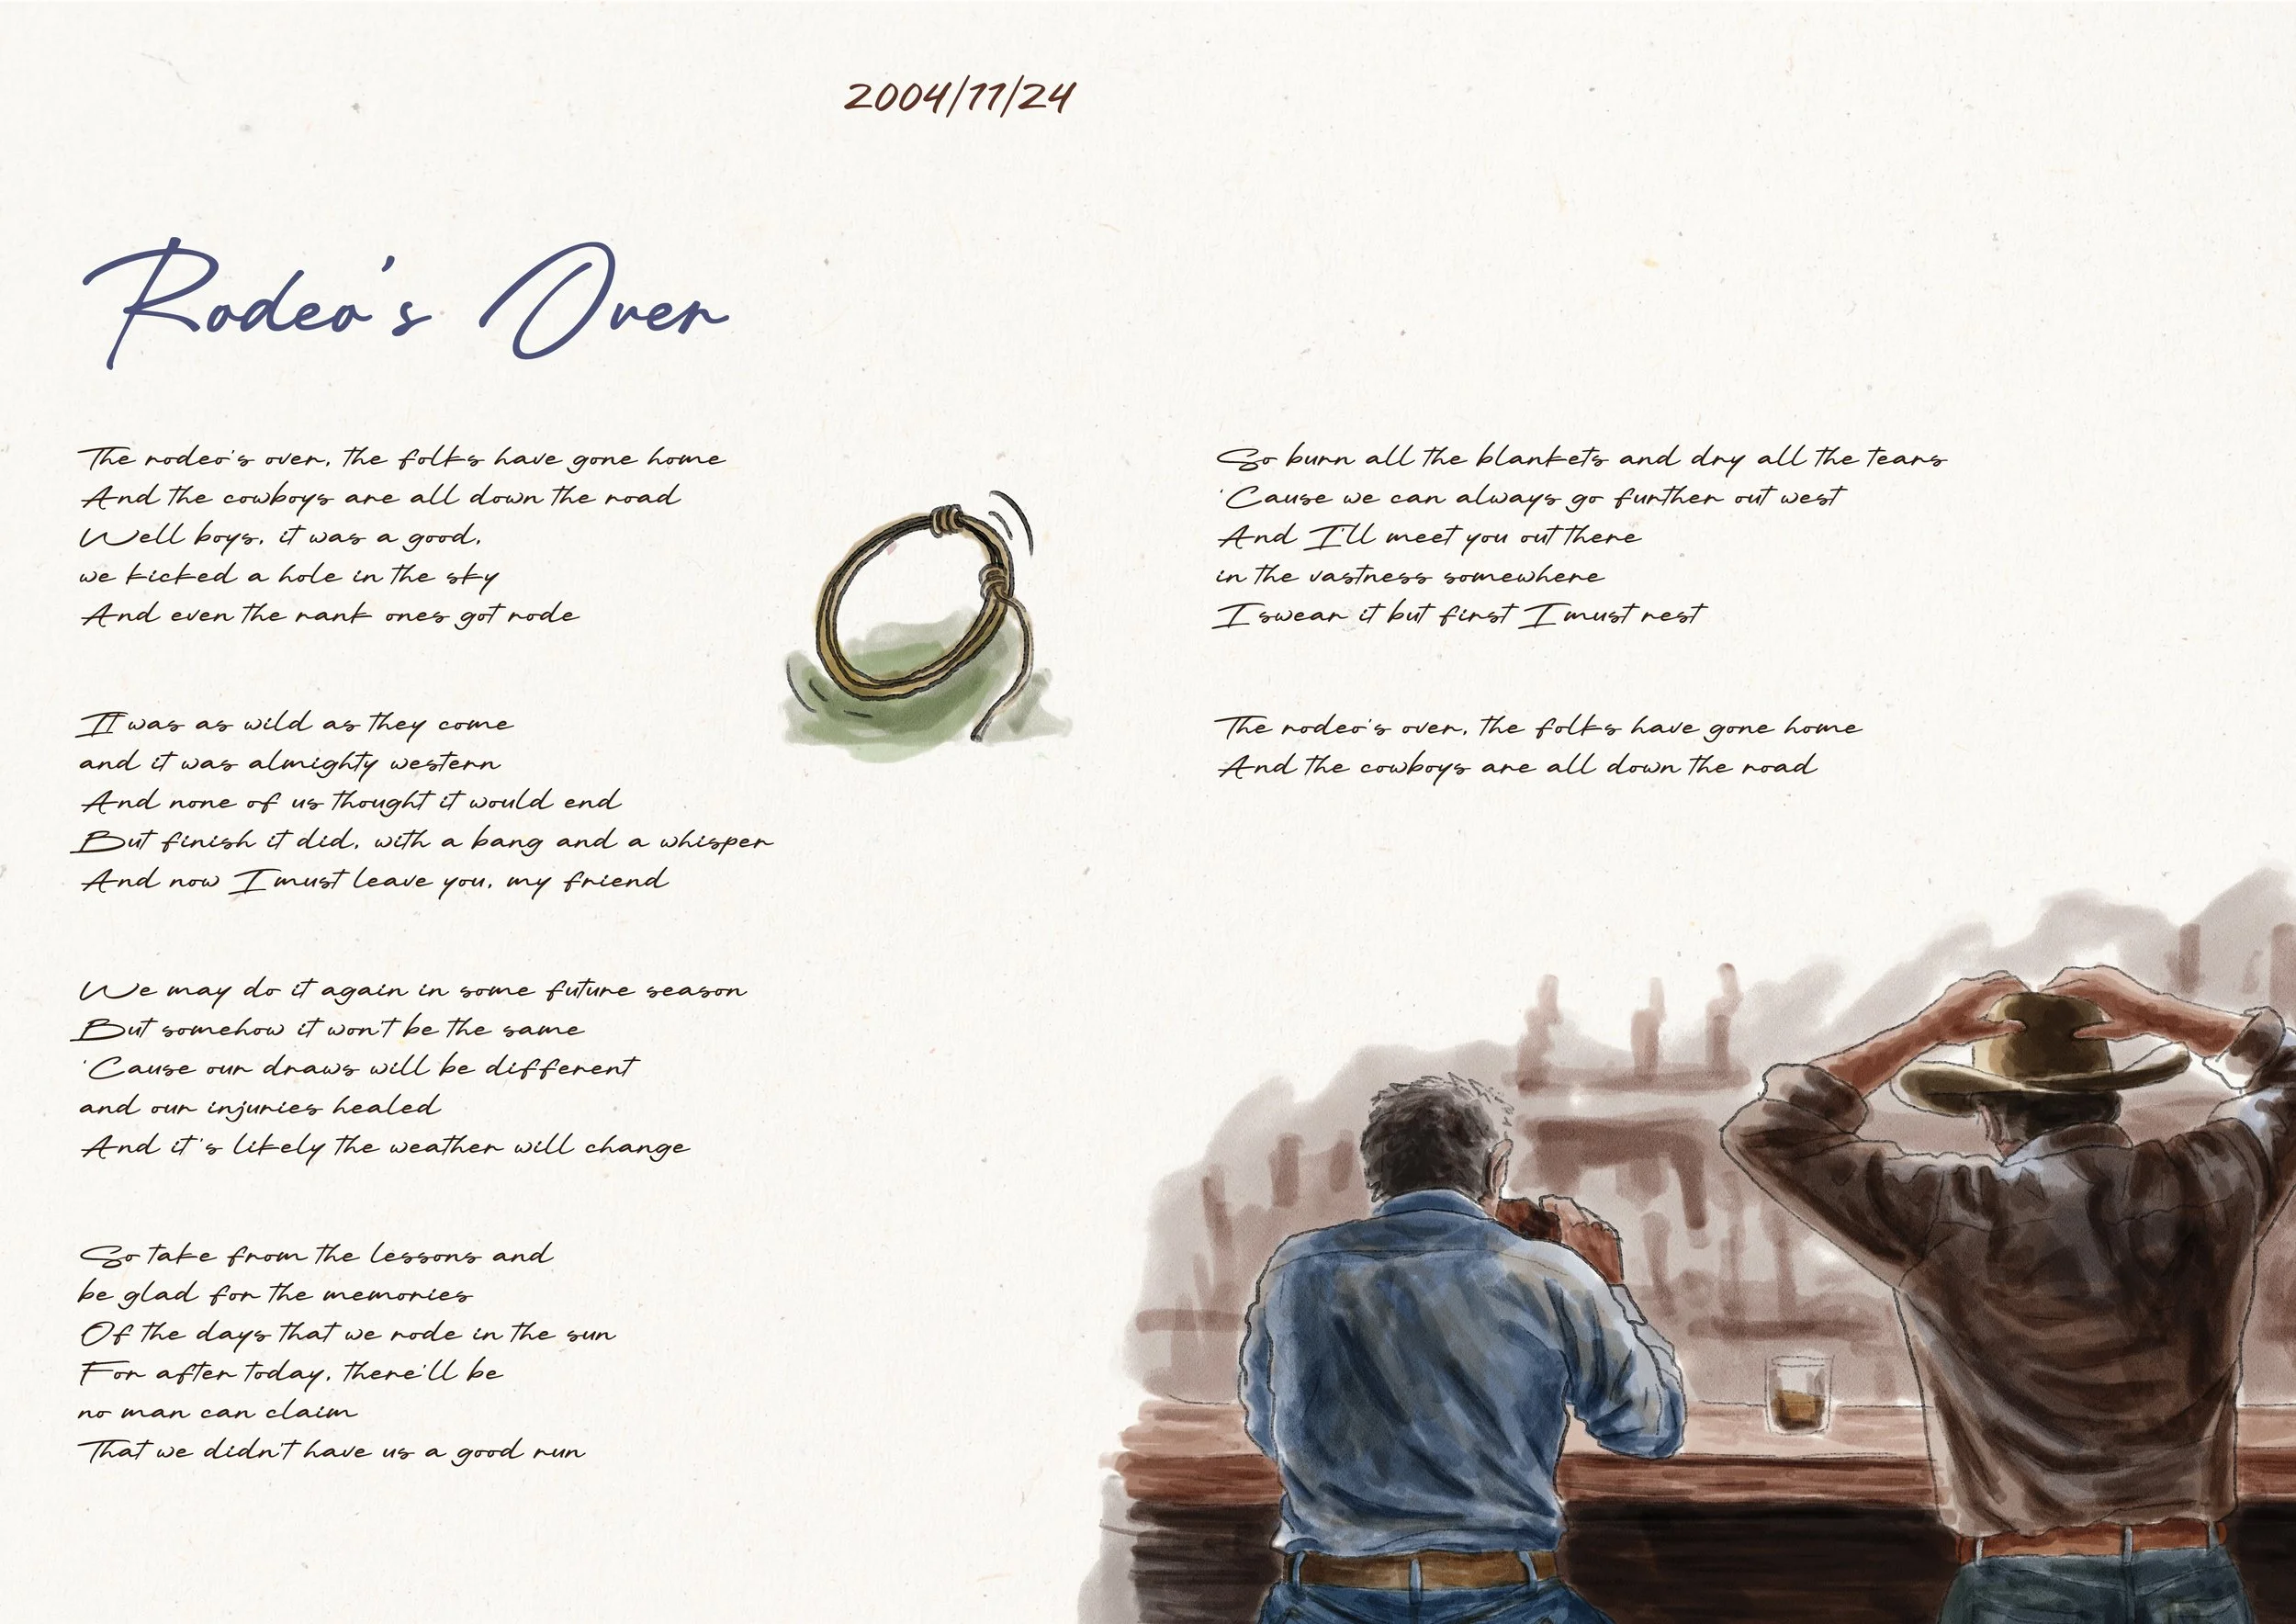 2004/11/24
Rodeo's Over
The rodeo's over, the folks have gone home
And the cowboys are all down the road
Well boys, it was a good,
we kicked a hole in the sky
And even the rank ones got rode
It was as wild as they come
and it was almighty western
And none of us thought it would end
But finish it did, with a bang and a whisper
And now I must leave you, my friend
We may do it again in some future season
But somehow it won't be the same
'Cause our draws will be different
and our injuries healed
And it's likely the weather will change
So take from the lessons and
be glad for the memories
Of the days that we rode in the sun
For after today, there'll be
no man can claim
That we didn't have us a good run
So burn all the blankets and dry all the tears
'Cause we can always go further out west
And I'll meet you out there
in the vastness somewhere
I swear it but first I must rest
The rodeo's over, the folks have gone home
And the cowboys are all down the road